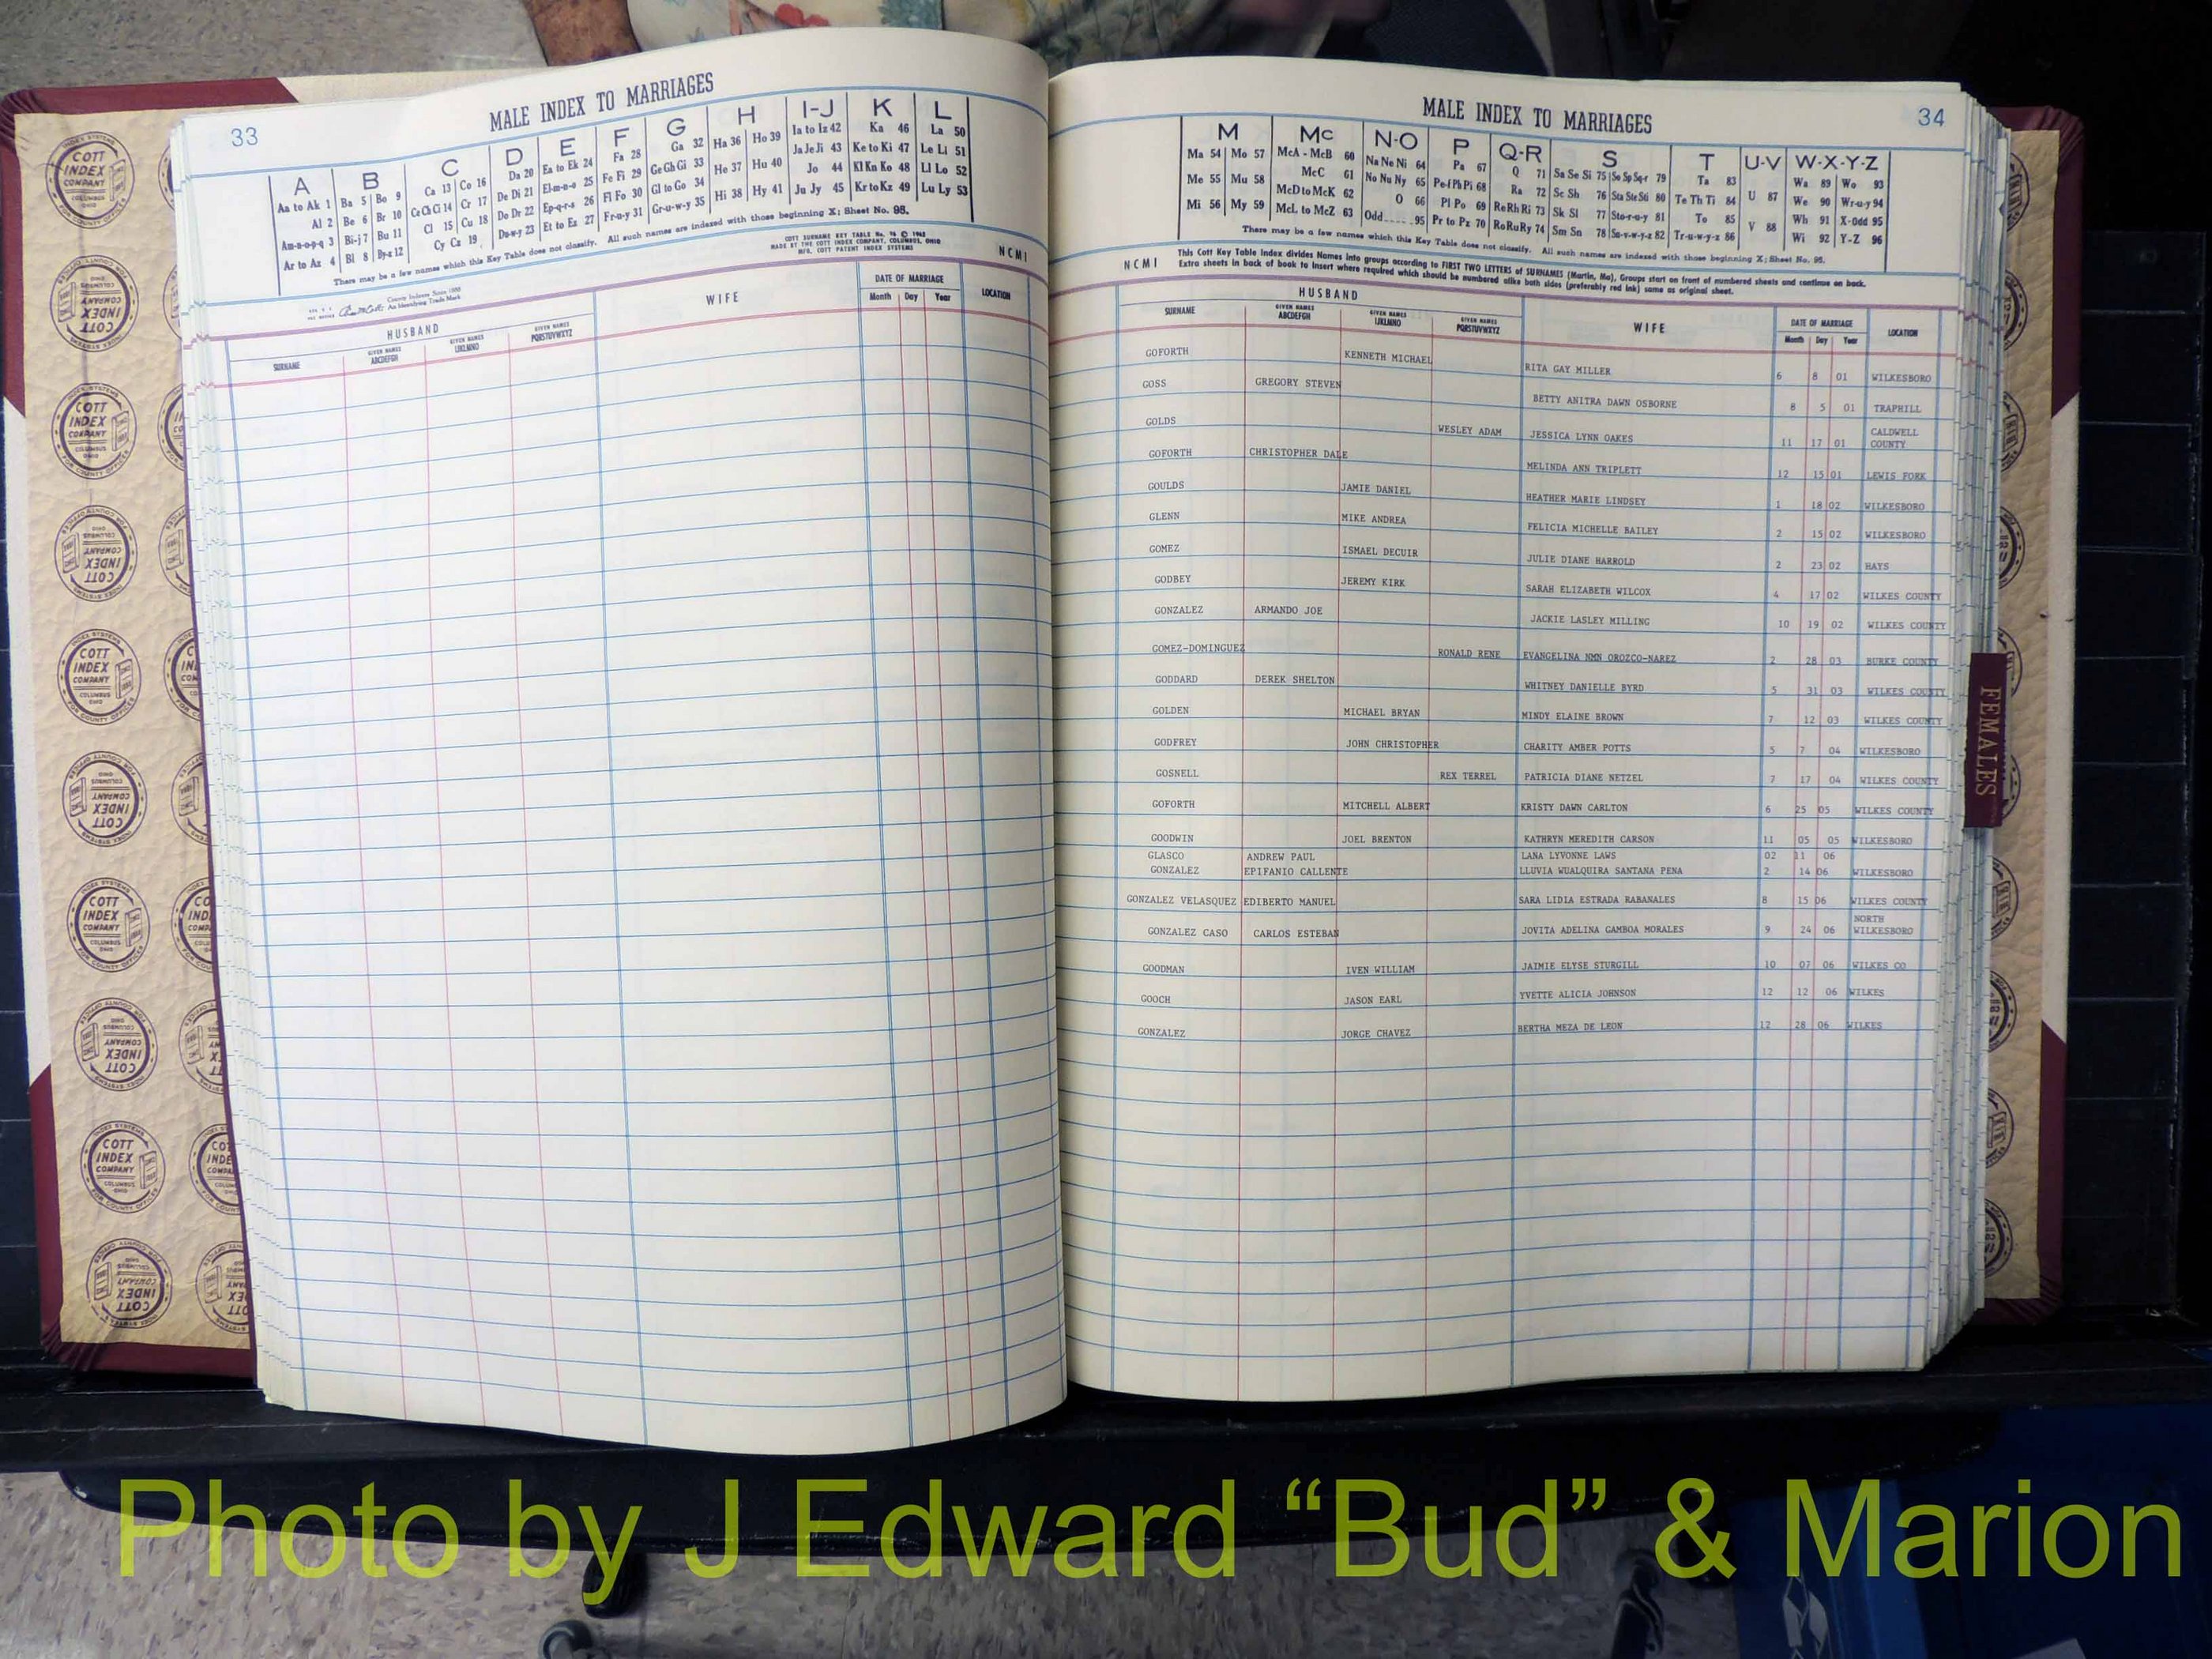 33
MALE INDEX TO MARRIAGES
A B C D E F G H I-J K L
Aa to Ak 1 Ba 5 Bo 9 Ca 13 Co 16 Da 20 Ea to Ek 24 Fa 28 Ga 32 Ha 36 Ho 39 Ia to Iz 42 Ka 46 La 50
Al 2 Be 6 Br 10 Ce Ch Ci 14 Cr 17 De Di 21 El-m-n-o 25 Fe Fi 29 Ge Gh Gi 33 He 37 Hu 40 Ja Je Ji 43 Ke to Ki 47 Le Li 51
Am-n-o-p-q 3 Bi-j 7 Bu 11 Cl 15 Cu 18 Do Dr 22 Ep-q-r-s 26 Fl Fo 30 Gl to Go 34 Hi 38 Hy 41 Jo 44 Kl Kn Ko 48 Ll Lo 52
Ar to Az 4 Bl 8 By-z 12 Cy Cz 19 Du-w-y 23 Et to Ez 27 Fr-u-y 31 Gr-u-w-y 35 Ju Jy 45 Kr to Kz 49 Lu Ly 53
There may be a few names which this Key Table does not classify. All such names are indexed with those beginning X; Sheet No. 95.
MADE BY THE COTT INDEX COMPANY, COLUMBUS, OHIO
NCMI
County Indexes Since 1888
An Identifying Trade Mark
HUSBAND WIFE DATE OF MARRIAGE LOCATION
SURNAME GIVEN NAMES ABCDEFGH GIVEN NAMES IJKLMNO GIVEN NAMES PQRSTUVWXYZ Month Day Year
34
MALE INDEX TO MARRIAGES
M Mc N-O P Q-R S T U-V W-X-Y-Z
Ma 54 Mo 57 McA - McB 60 Na Ne Ni 64 Pa 67 Q 71 Sa Se Si 75 So Sp Sq-r 79 Ta 83 Wa 89 Wo 93
Me 55 Mu 58 McC 61 No Nu Ny 65 Pe-f Ph Pi 68 Ra 72 Sc Sh 76 Sta Ste Sti 80 Te Th Ti 84 U 87 We 90 Wr-u-y 94
Mi 56 My 59 McD to McK 62 O 66 Pl Po 69 Re Rh Ri 73 Sk Sl 77 Sto-r-u-y 81 To 85 Wh 91 X-Odd 95
McL to McZ 63 Odd 95 Pr to Pz 70 Ro Ru Ry 74 Sm Sn 78 Su-v-w-y-z 82 Tr-u-w-y-z 86 V 88 Wi 92 Y-Z 96
There may be a few names which this Key Table does not classify. All such names are indexed with those beginning X; Sheet No. 95.
NCMI
This Cott Key Table Index divides Names into groups according to FIRST TWO LETTERS of SURNAMES (Martin, Ma), Groups start on front of numbered sheets and continue on back.
Extra sheets in back of book to insert where required which should be numbered alike both sides (preferably red ink) same as original sheet.
HUSBAND WIFE DATE OF MARRIAGE LOCATION
SURNAME GIVEN NAMES ABCDEFGH GIVEN NAMES IJKLMNO GIVEN NAMES PQRSTUVWXYZ Month Day Year
GOFORTH KENNETH MICHAEL RITA GAY MILLER 6 8 01 WILKESBORO
GOSS GREGORY STEVEN BETTY ANITRA DAWN OSBORNE 8 5 01 TRAPHILL
GOLDS WESLEY ADAM JESSICA LYNN OAKES 11 17 01 CALDWELL COUNTY
GOFORTH CHRISTOPHER DALE MELINDA ANN TRIPLETT 12 15 01 LEWIS FORK
GOULDS JAMIE DANIEL HEATHER MARIE LINDSEY 1 18 02 WILKESBORO
GLENN MIKE ANDREA FELICIA MICHELLE BAILEY 2 15 02 WILKESBORO
GOMEZ ISMAEL DECUIR JULIE DIANE HARROLD 2 23 02 HAYS
GODBEY JEREMY KIRK SARAH ELIZABETH WILCOX 4 17 02 WILKES COUNTY
GONZALEZ ARMANDO JOE JACKIE LASLEY MILLING 10 19 02 WILKES COUNTY
GOMEZ-DOMINGUEZ RONALD RENE EVANGELINA NMN OROZCO-NAREZ 2 28 03 BURKE COUNTY
GODDARD DEREK SHELTON WHITNEY DANIELLE BYRD 5 31 03 WILKES COUNTY
GOLDEN MICHAEL BRYAN MINDY ELAINE BROWN 7 12 03 WILKES COUNTY
GODFREY JOHN CHRISTOPHER CHARITY AMBER POTTS 5 7 04 WILKESBORO
GOSNELL REX TERREL PATRICIA DIANE NETZEL 7 17 04 WILKES COUNTY
GOFORTH MITCHELL ALBERT KRISTY DAWN CARLTON 6 25 05 WILKES COUNTY
GOODWIN JOEL BRENTON KATHRYN MEREDITH CARSON 11 05 05 WILKESBORO
GLASCO ANDREW PAUL LANA LYVONNE LAWS 02 11 06
GONZALEZ EPIFANIO CALLENTE LLUVIA WUALQUIRA SANTANA PENA 2 14 06 WILKESBORO
GONZALEZ VELASQUEZ EDIBERTO MANUEL SARA LIDIA ESTRADA RABANALES 8 15 06 WILKES COUNTY
GONZALEZ CASO CARLOS ESTEBAN JOVITA ADELINA GAMBOA MORALES 9 24 06 NORTH WILKESBORO
GOODMAN IVEN WILLIAM JAIMIE ELYSE STURGILL 10 07 06 WILKES CO
GOOCH JASON EARL YVETTE ALICIA JOHNSON 12 12 06 WILKES
GONZALEZ JORGE CHAVEZ BERTHA MEZA DE LEON 12 28 06 WILKES
FEMALES
COTT INDEX COMPANY
COLUMBUS OHIO
INDEX SYSTEMS
FOR COUNTY OFFICES
Photo by J Edward “Bud” & Marion